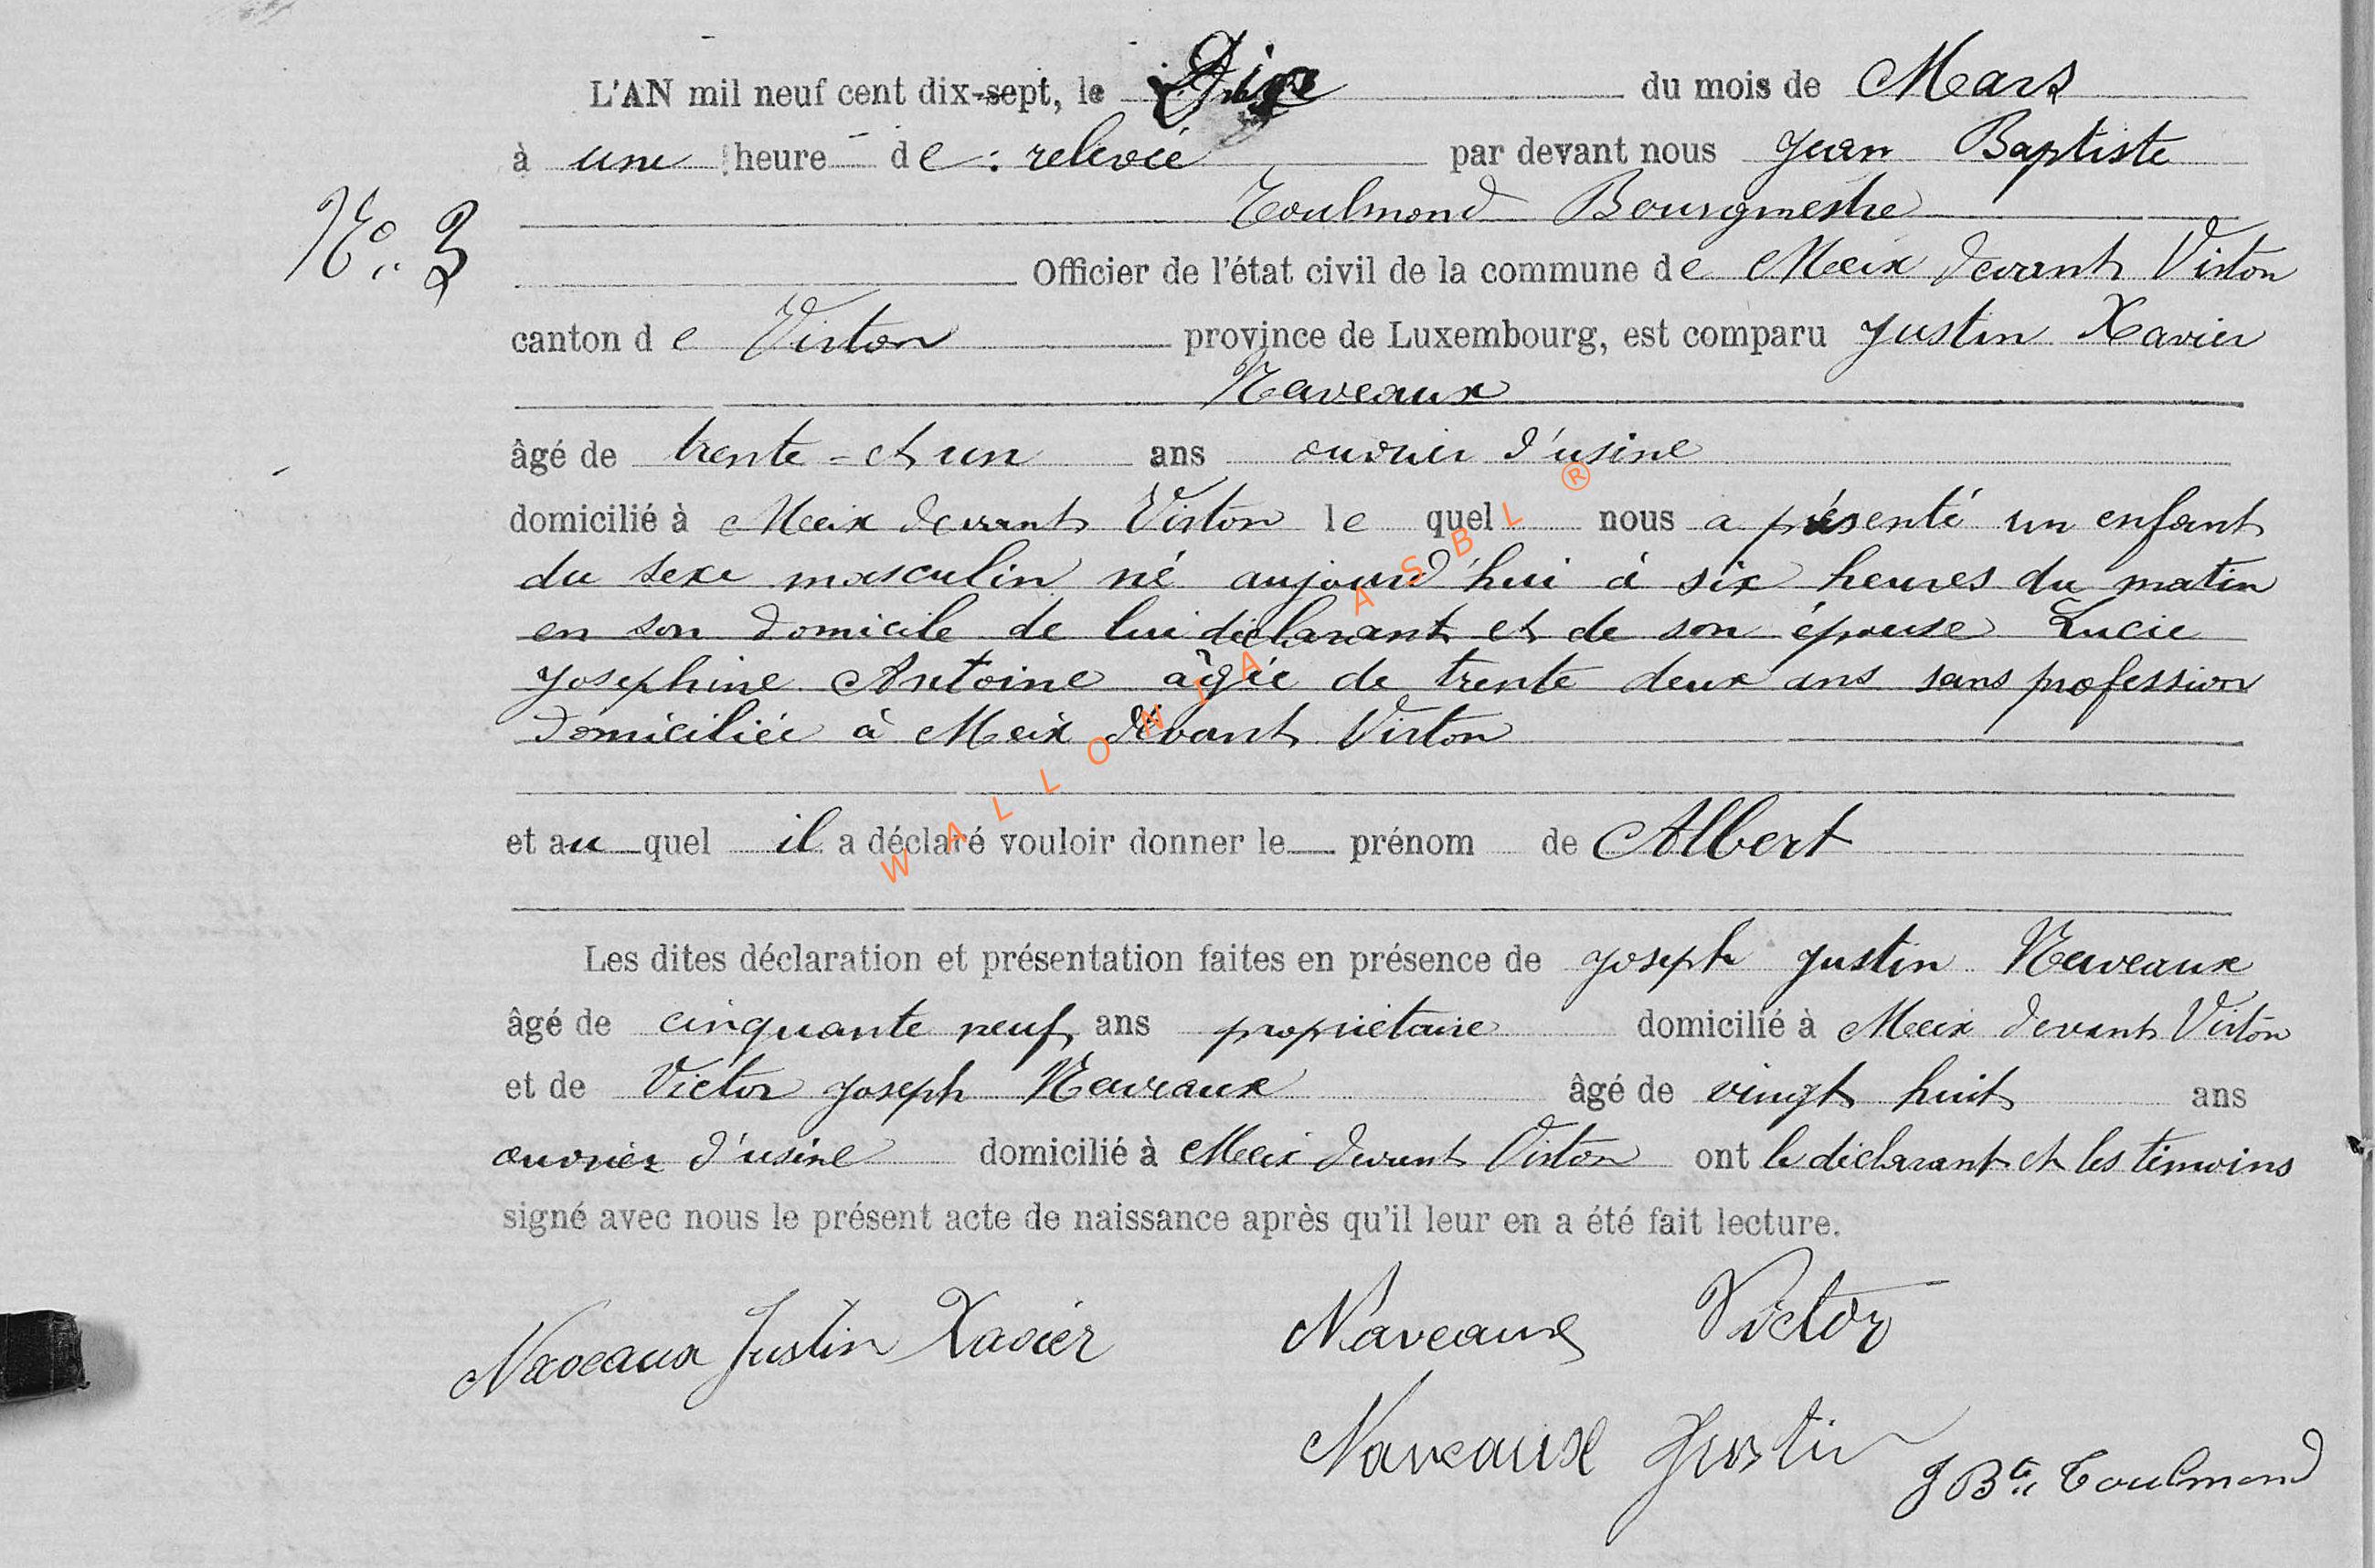 L'AN mil neuf cent dix-sept, le Dix du mois de Mars
à une heure de : relevée par devant nous Jean Baptiste
Toulmond Bourgmestre
N° 3
Officier de l'état civil de la commune de Meix devant Virton
canton de Virton province de Luxembourg, est comparu Justin Xavier
Naveaux
âgé de trente-et un ans ouvrier d'usine
domicilié à Meix devant Virton le quel nous a présenté un enfant
du sexe masculin né aujourd'hui à six heures du matin
en son domicile de lui déclarant et de son épouse Lucie
Josephine Antoine âgée de trente deux ans sans profession
domiciliée à Meix devant Virton
et au quel il a déclaré vouloir donner le prénom de Albert
Les dites déclaration et présentation faites en présence de Joseph Justin Naveaux
âgé de cinquante neuf ans propriétaire domicilié à Meix devant Virton
et de Victor Joseph Naveaux âgé de vingt huit ans
ouvrier d'usine domicilié à Meix devant Virton ont le déclarant et les témoins
signé avec nous le présent acte de naissance après qu'il leur en a été fait lecture.
Naveaux Justin Xavier Naveaux Victor
Naveaux Justin
J Bte Toulmond
WALLONIA ASBL ®